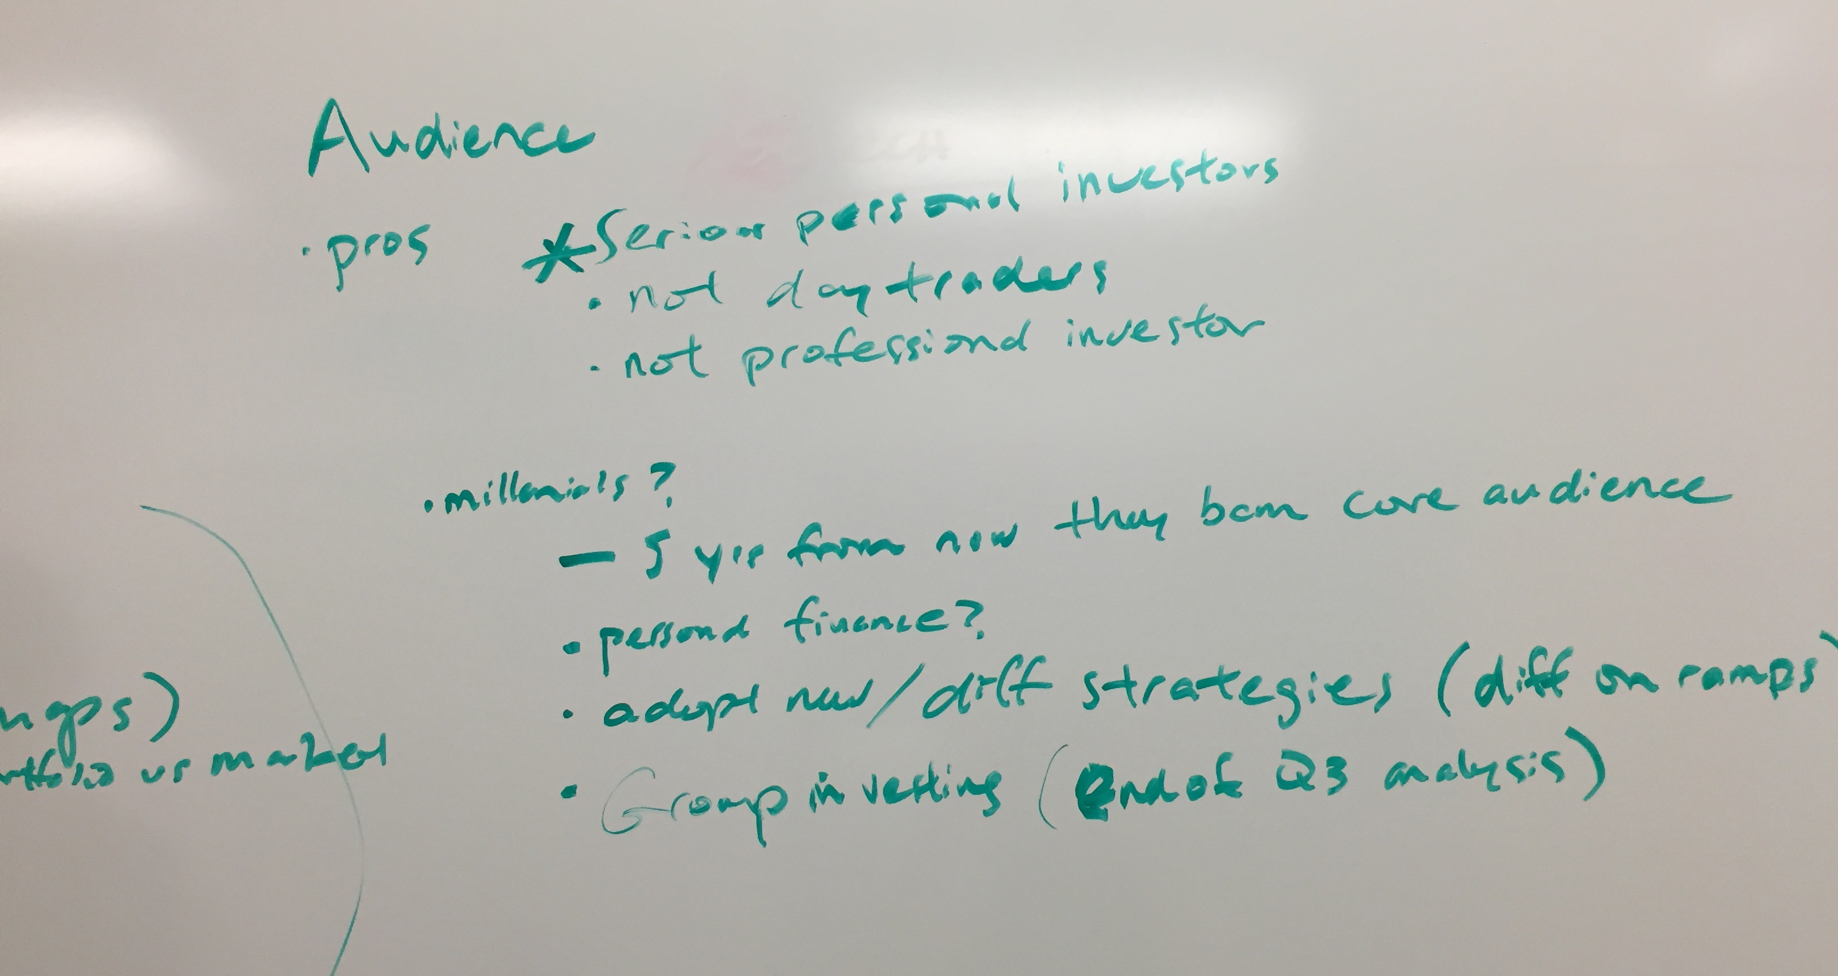 Audience
· pros
* Serious personal investors
· not day traders
· not professional investor
· millenials?
— 5 yrs from now they becm core audience
· personal finance?
· adopt new/diff strategies (diff on ramps)
· Group investing (end of Q3 analysis)
vs market